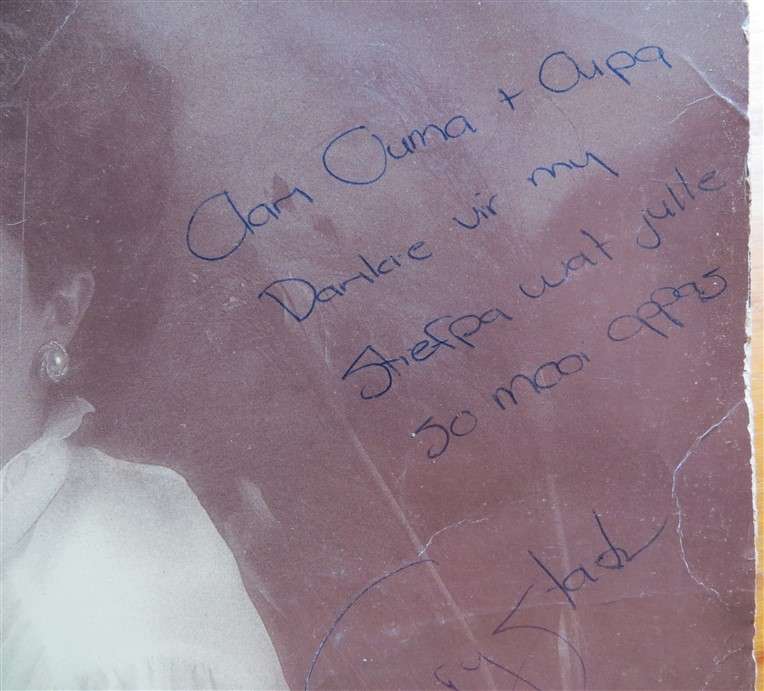 Aan Ouma + Oupa
Dankie vir my
Stiefpa wat julle
so mooi oppas